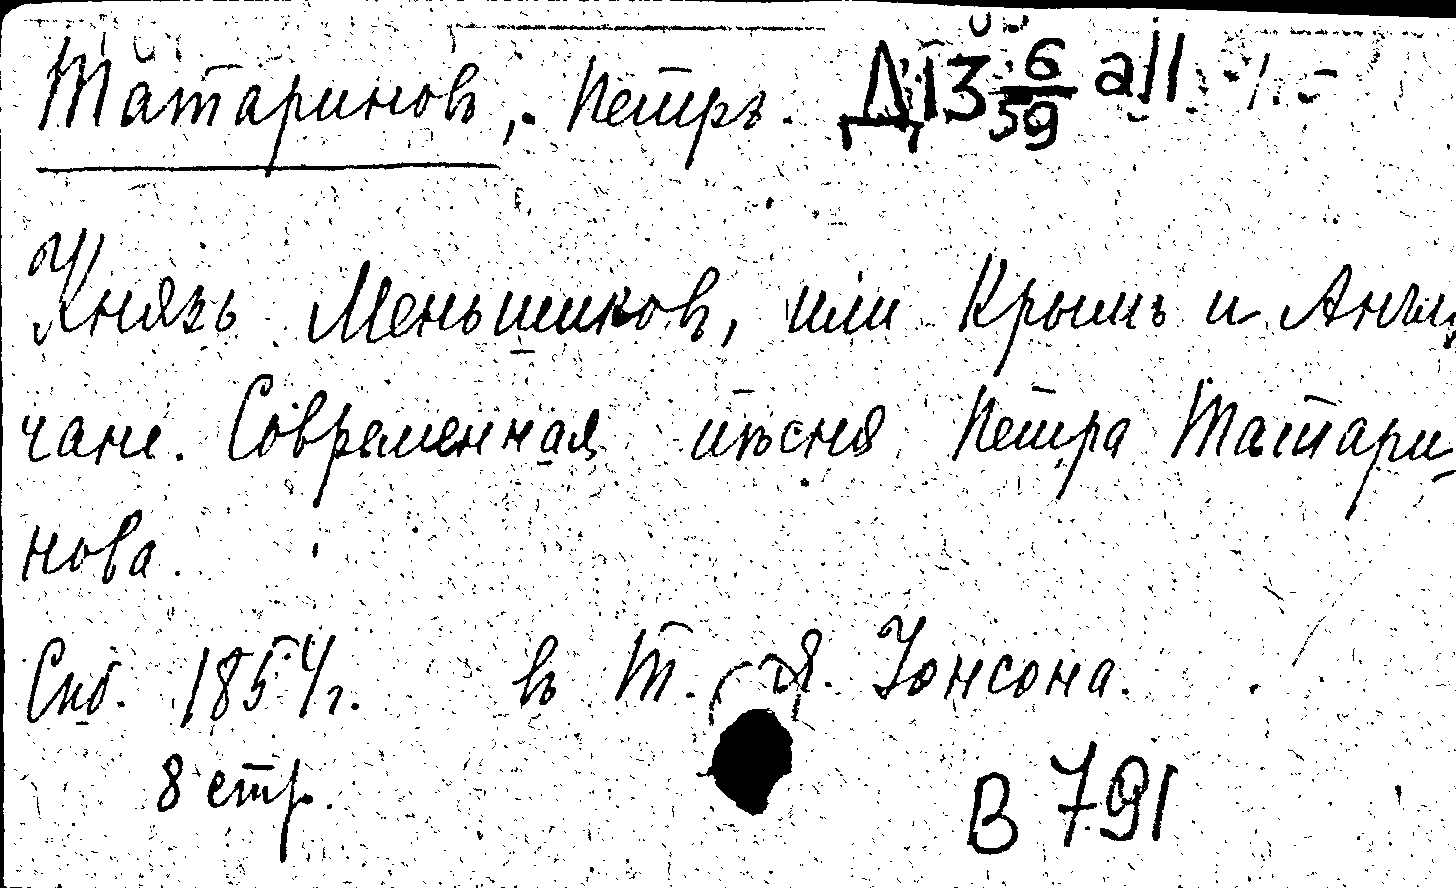 Татариновъ, Петръ. Д13 6/59 all
Князь Меньшиковъ, или Крымъ и Англи
чане. Современная пѣсня Петра Татари
нова.
Спб. 1854 г. въ Т. Я. Іонсона.
8 стр.
В 791